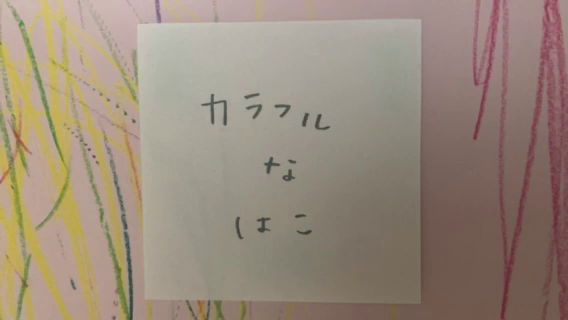 カラフル
な
はこ